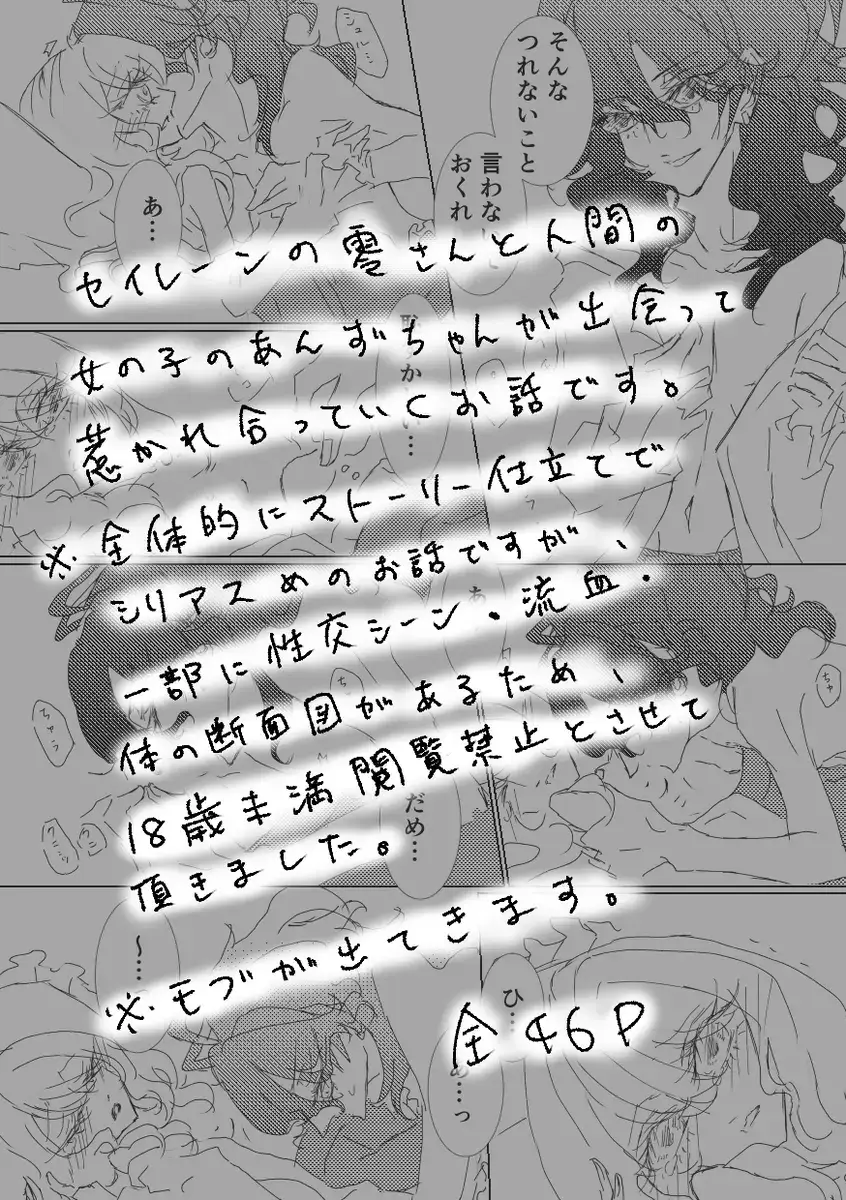 そんな
つれないこと
言わな
おくれ
あ…
セイレーンの零さんと人間の
女の子のあんずちゃんが出会って
惹かれ合っていくお話です。
※全体的にストーリー仕立てで
シリアスめのお話ですが、
一部に性交シーン・流血・
体の断面図があるため、
18歳未満閲覧禁止とさせて
頂きました。
※モブが出てきます。
全46P
あ
ちゅう
ちゅ
だめ…
〜……
ひ…
…っ